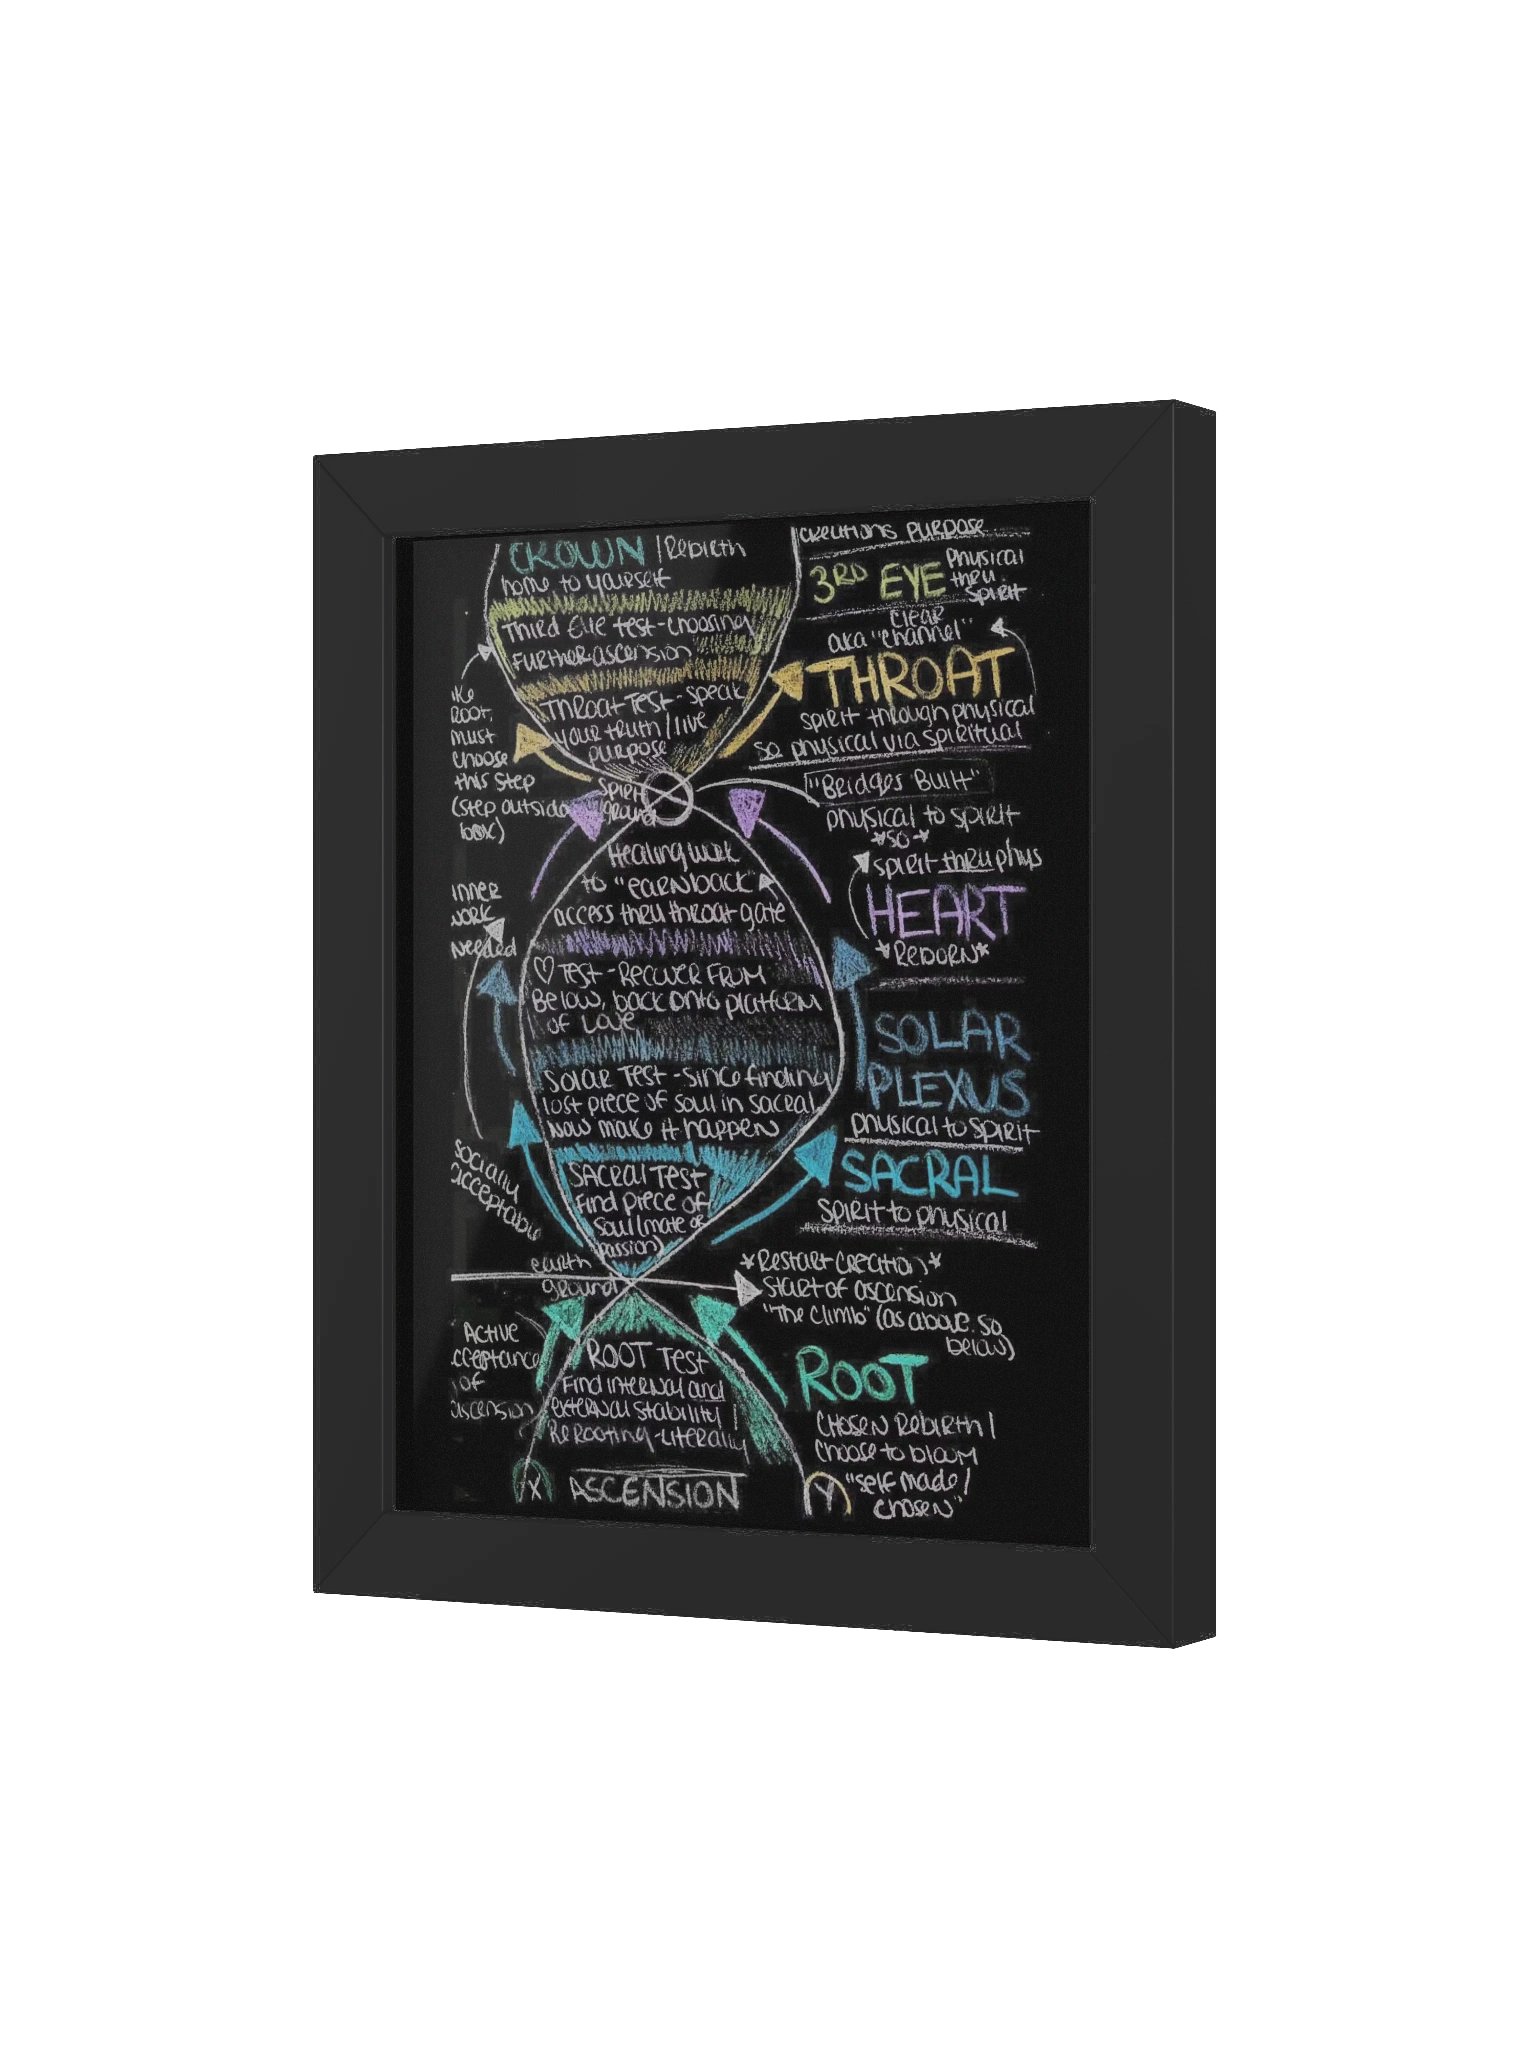 CROWN / Rebirth
home to yourself
Third Eye test - choosing
further ascension
Throat Test - speak
your truth / live
purpose
spirit
ground
Healing work
to "earn back"
access thru throat gate
♡ Test - Recover From
Below, back onto platform
of Love
Solar Test - since finding
lost piece of soul in sacral
now make it happen
Sacral Test
find piece of
soul (mate or
passion)
earth
ground
ROOT Test
Find internal and
external stability /
Rerooting - Literally
X ASCENSION Y
Root,
must
choose
this step
(step outside
box)
inner
work
Needed
socially
acceptable
Active
cceptance
of
ascension
creations purpose
3RD EYE
Physical
thru
spirit
clear
aka "channel"
THROAT
spirit through physical
so physical via spiritual
"Bridges Built"
physical to spirit
*so*
spirit thru phys
HEART
*Reborn*
SOLAR
PLEXUS
physical to spirit
SACRAL
spirit to physical
*Restart Creation*
start of ascension
"The Climb" (as above. so
below)
ROOT
Chosen Rebirth /
Choose to bloom
"self made /
chosen"